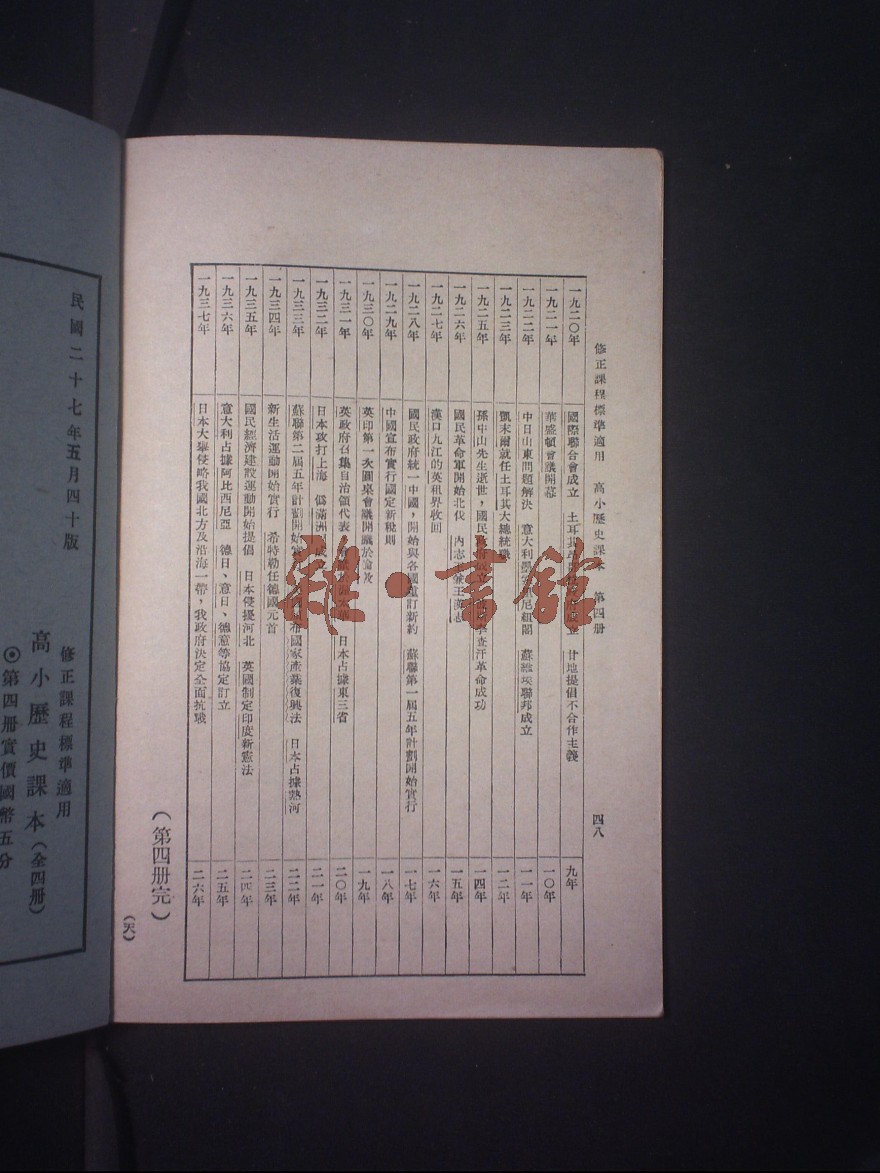 修正課程標準適用　高小歷史課本　第四册
四八
一九二〇年　國際聯合會成立　土耳其　成立　甘地提倡不合作主義　九年
一九二一年　華盛頓會議開幕　一〇年
一九二二年　中日山東問題解決　意大利墨索里尼組閣　蘇維埃聯邦成立　一一年
一九二三年　凱末爾就任土耳其大總統職　一二年
一九二五年　孫中山先生逝世，國民政府成立　查汗革命成功　一四年
一九二六年　國民革命軍開始北伐　內志　兼王漢志　一五年
一九二七年　漢口九江的英租界收回　一六年
一九二八年　國民政府統一中國，開始與各國重訂新約　蘇聯第一屆五年計劃開始實行　一七年
一九二九年　中國宣布實行國定新稅則　一八年
一九三〇年　英印第一次圓桌會議開議於倫敦　一九年
一九三一年　英政府召集自治領代表　日本占據東三省　二〇年
一九三二年　日本攻打上海　僞滿洲　二一年
一九三三年　蘇聯第二屆五年計劃開始實　布國家產業復興法　日本占據熱河　二二年
一九三四年　新生活運動開始實行　希特勒任德國元首　二三年
一九三五年　國民經濟建設運動開始提倡　日本侵擾河北　英國制定印度新憲法　二四年
一九三六年　意大利占據阿比西尼亞　德日、意日、德意等協定訂立　二五年
一九三七年　日本大舉侵略我國北方及沿海一帶，我政府決定全面抗戰　二六年
（第四册完）
（天）
民國二十七年五月四十版
修正課程標準適用
高小歷史課本（全四册）
◎第四册實價國幣五分
雜·書館